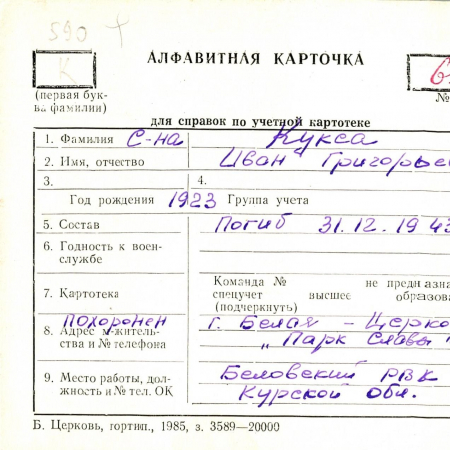 590 +
АЛФАВИТНАЯ КАРТОЧКА
К
(первая бук-
ва фамилии)
№
для справок по учетной картотеке
1. Фамилия С-на Кукса
2. Имя, отчество Иван Григорье
3. 4.
Год рождения 1923 Группа учета
5. Состав Погиб 31.12.1943
6. Годность к воен-
службе
Команда № не предназна
7. Картотека спецучет высшее образова
(подчеркнуть)
похоронен г. Белая - Церко
8. Адрес м-житель-
ства и № телефона „Парк Славы
9. Место работы, дол- Беловский РВК
жность и № тел. ОК Курской обл.
Б. Церковь, гортип., 1985, з. 3589—20000